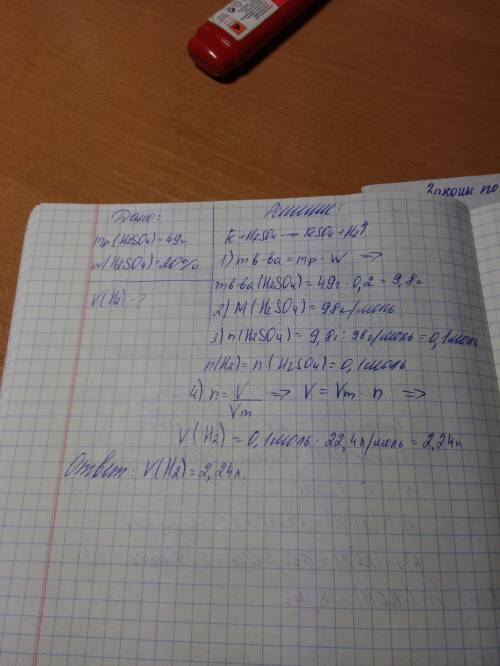 2 полоны по
Дано:
Решение:
mр(H2SO4)=49г
w(H2SO4)=20%
V(H2)-?
Fe+H2SO4 → FeSO4+H2↑
1) mв-ва = mр · w ⇒
mв-ва(H2SO4)=49г·0,2=9,8г
2) M(H2SO4)=98г/моль
3) n(H2SO4)=9,8г:98г/моль=0,1моль
n(H2)=n(H2SO4)=0,1моль
4) n=V/Vm ⇒ V=Vm·n ⇒
V(H2)=0,1моль·22,4л/моль=2,24л
Ответ: V(H2)=2,24л.